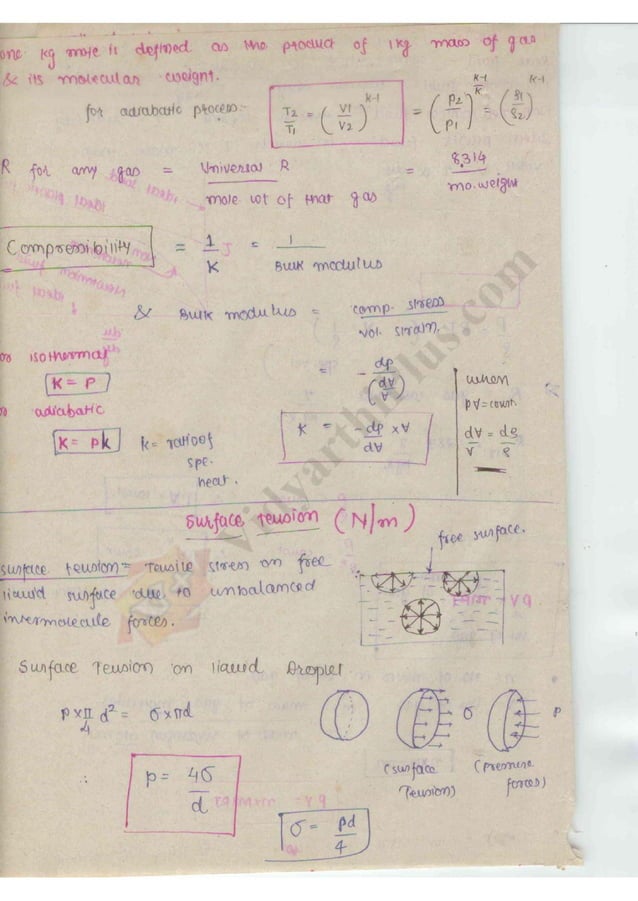 one kg mole is defined as the product of 1kg mass of gas
& its molecular weight.
for adiabatic process:-
T2/T1 = (V1/V2)^K-1 = (P2/P1)^K-1/K = (ρ1/ρ2)^K-1
R for any gas = Universal R / mole wt of that gas = 8.314 / mo.weight
Compressibility = 1/K = 1 / Bulk modulus
& Bulk modulus = comp. stress / vol. strain.
or isothermal
K = P
= - dp / (dV/V)
when
pV = const.
dV/V = dρ/ρ
adiabatic
K = pk
k = ratio of
spe.
heat.
K = -dp/dV × V
Surface Tension (N/m)
free surface.
surface tension = Tensile stress on free
liquid surface due to unbalanced
intermolecule forces.
Surface Tension on liquid Droplet
P × π/4 d² = σ × πd
σ
P
(surface
Tension)
(pressure
forces)
∴ p = 4σ/d
σ = pd/4
VidyarthiPlus.com
V+